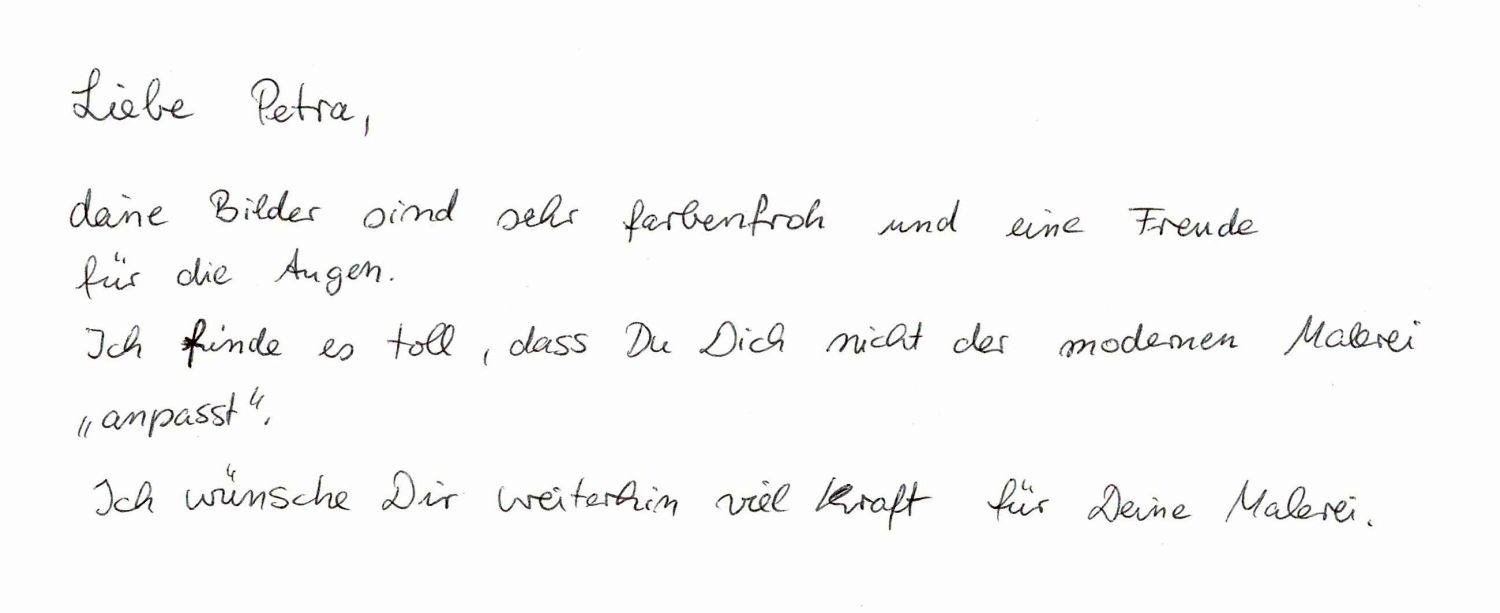 Liebe Petra,
deine Bilder sind sehr farbenfroh und eine Freude
für die Augen.
Ich finde es toll, dass Du Dich nicht der modernen Malerei
„anpasst“.
Ich wünsche Dir weiterhin viel Kraft für Deine Malerei.